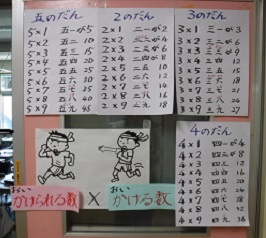 五のだん
5×1 五一が5
5×2 五二 10
5×3 五三 15
5×4 五四 20
5×5 五五 25
5×6 五六 30
5×7 五七 35
5×8 五八 40
5×9 五九 45
2のだん
2×1 二一が2
2×2 二二が4
2×3 二三が6
2×4 二四が8
2×5 二五 10
2×6 二六 12
2×7 二七 14
2×8 二八 16
2×9 二九 18
3のだん
3×1 三一が3
3×2 三二が6
3×3 三三が9
3×4 三四 12
3×5 三五 15
3×6 三六 18
3×7 三七 21
3×8 三八 24
3×9 三九 27
4のだん
4×1 四一が4
4×2 四二が8
4×3 四三 12
4×4 四四 16
4×5 四五 20
4×6 四六 24
4×7 四七 28
4×8 四八 32
4×9 四九 36
かけられる数
×
かける数